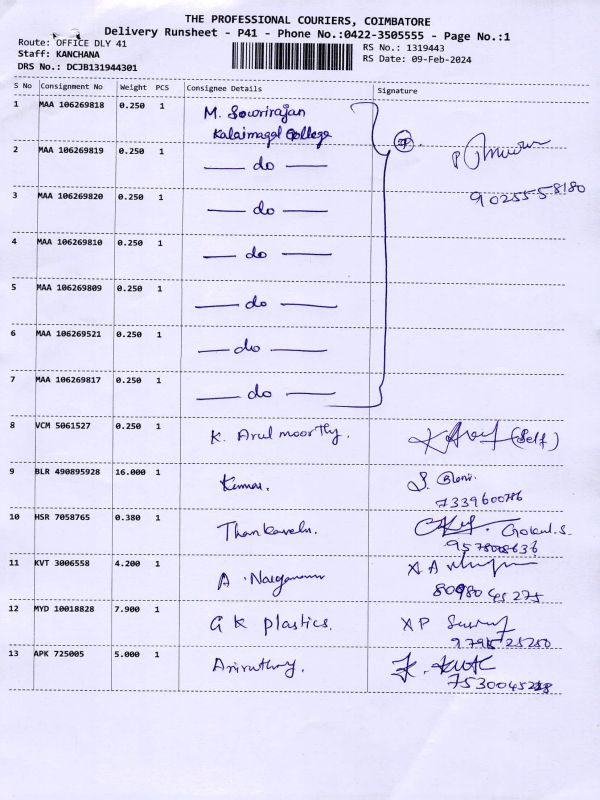 THE PROFESSIONAL COURIERS, COIMBATORE
Delivery Runsheet - P41 - Phone No.:0422-3505555 - Page No.:1
Route: OFFICE DLY 41
Staff: KANCHANA
DRS No.: DCJB131944301
RS No.: 1319443
RS Date: 09-Feb-2024
S No Consignment No Weight PCS Consignee Details Signature
1 MAA 106269818 0.250 1 M. Sowrirajan
Kalaimagal College
2 MAA 106269819 0.250 1 — do —
9025558180
3 MAA 106269820 0.250 1 — do —
4 MAA 106269810 0.250 1 — do —
5 MAA 106269809 0.250 1 — do —
6 MAA 106269521 0.250 1 — do —
7 MAA 106269817 0.250 1 — do —
8 VCM 5061527 0.250 1 K. Arul moorthy. (Self)
9 BLR 490895928 16.000 1 Kumar.
7339600786
10 HSR 7058765 0.380 1 Thankavelu. Gokul.S.
11 KVT 3006558 4.200 1 A.
8098045275
12 MYD 10018828 7.900 1 G K plastics.
13 APK 725005 5.000 1